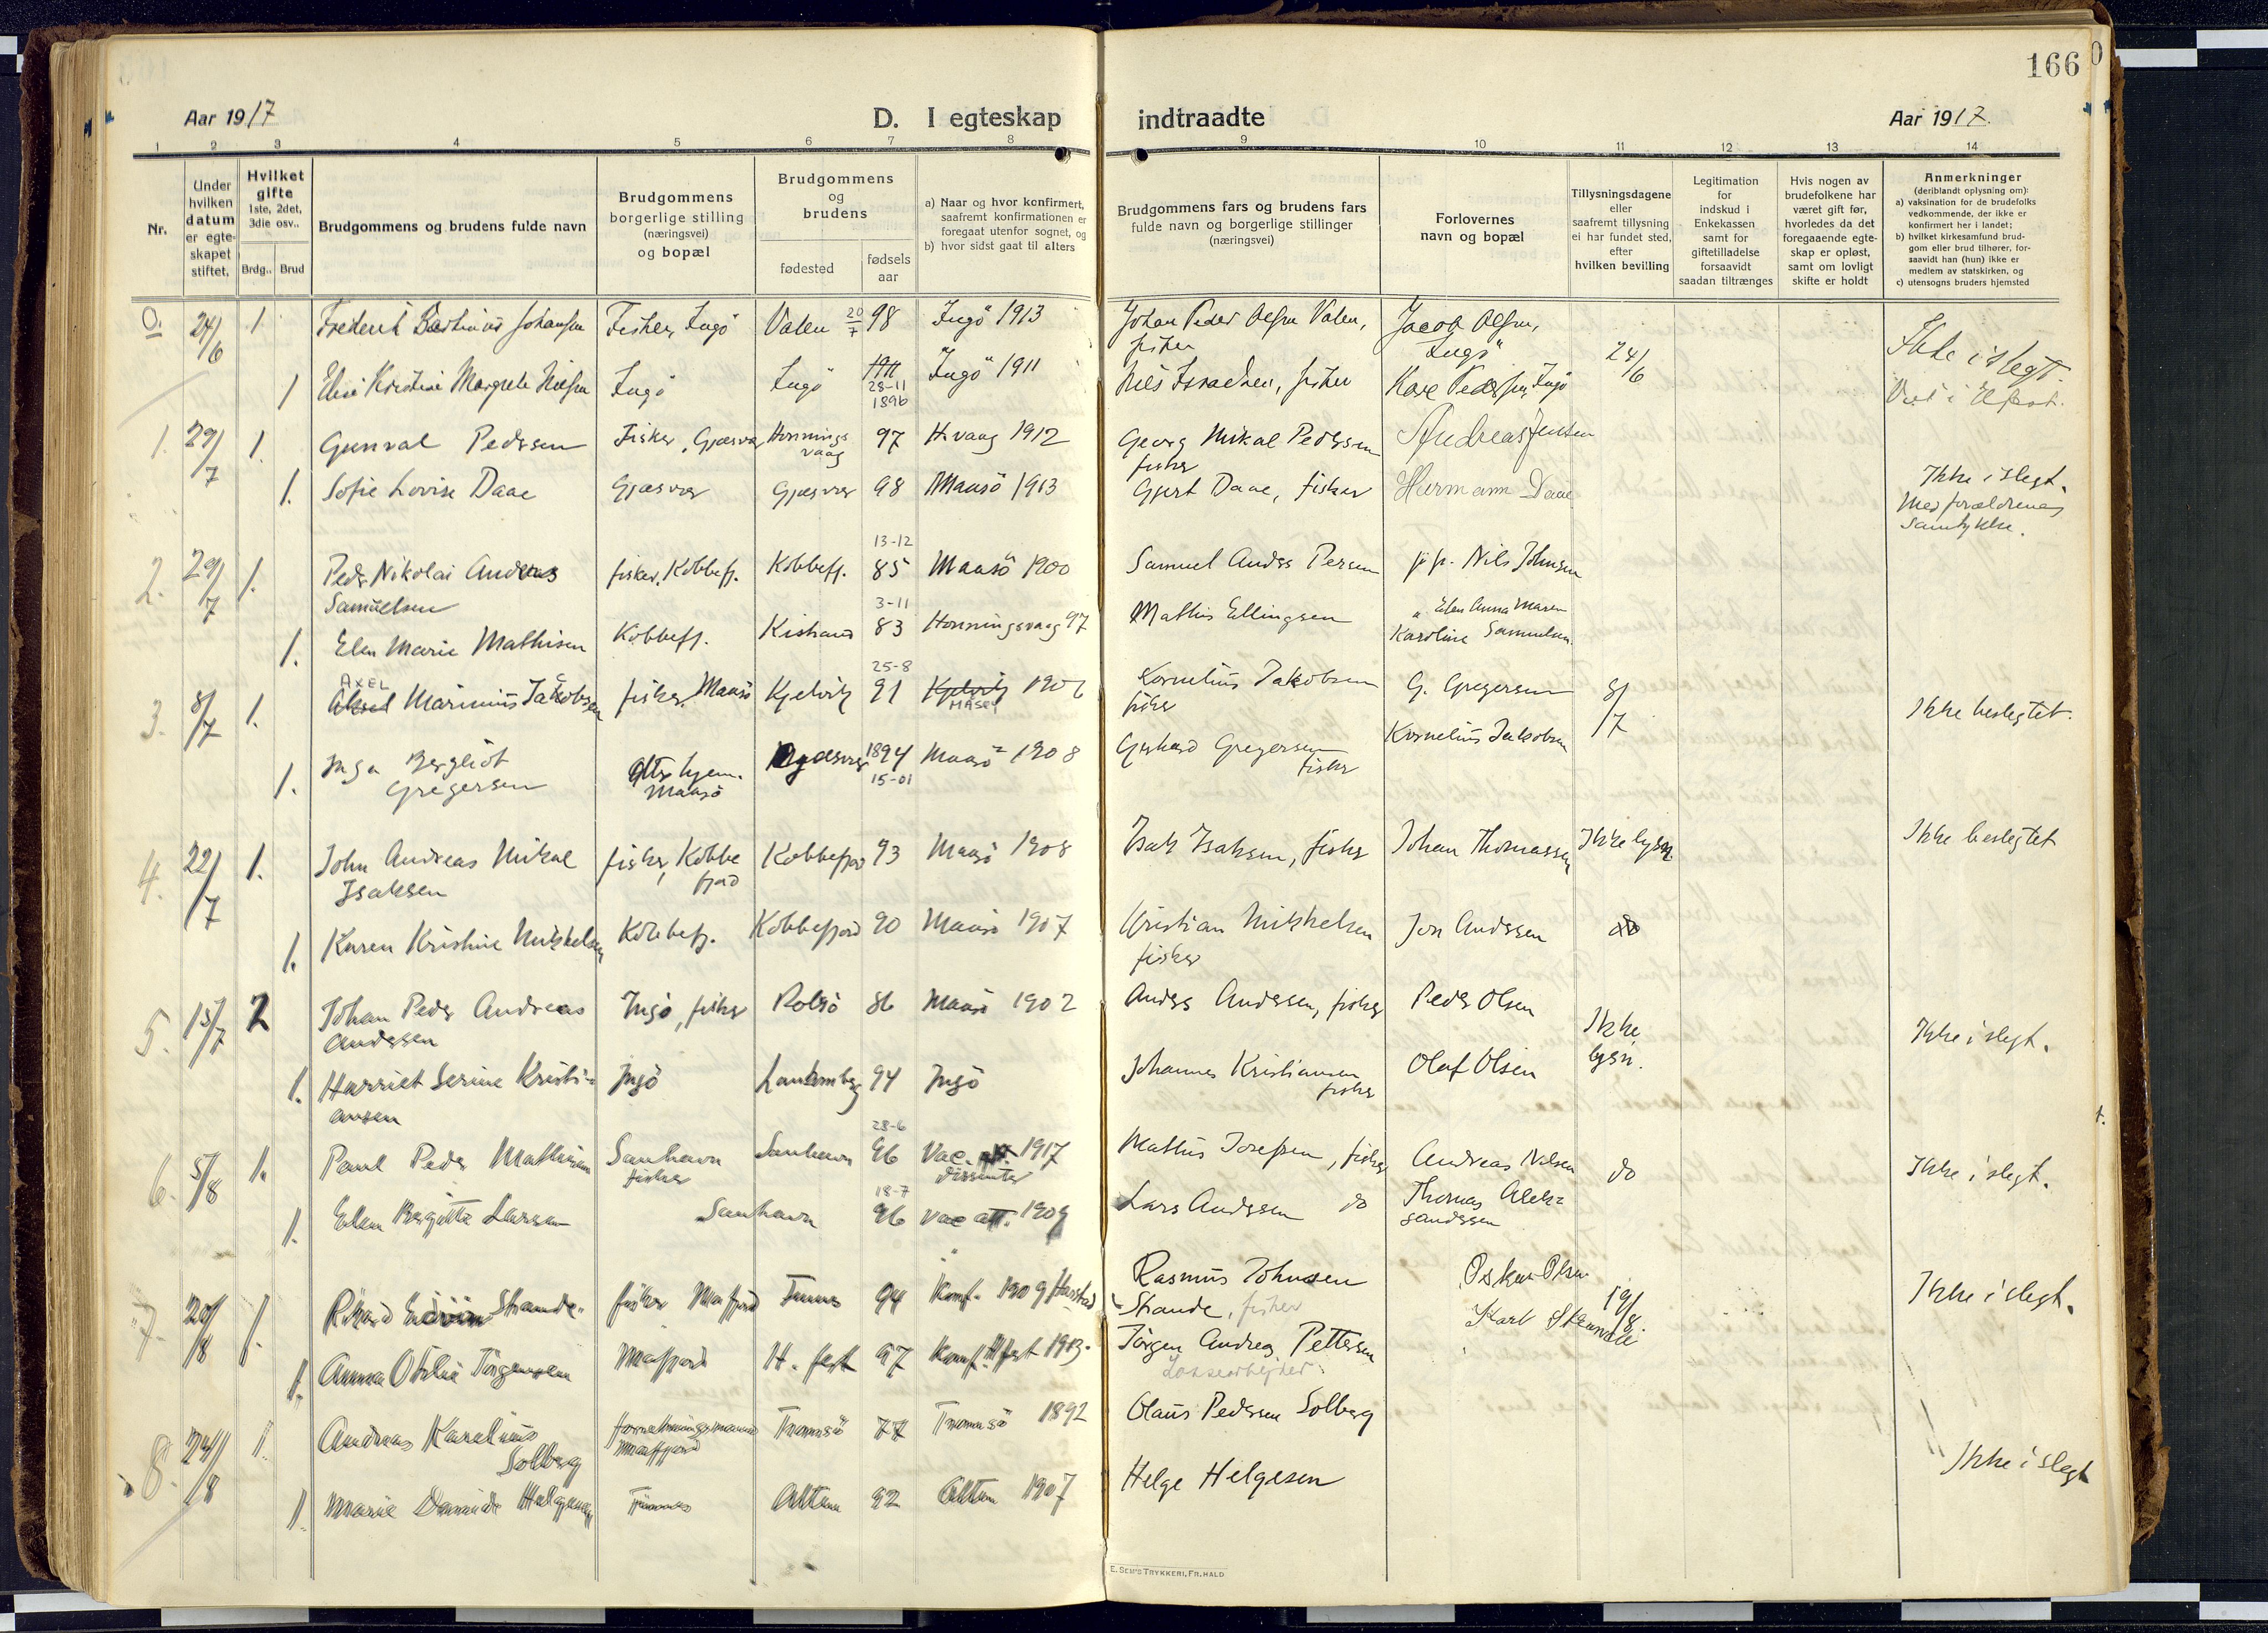 166
Aar 1917
D. I egteskap
indtraadte
Aar 1917.
1 2 3 4 5 6 7 8 9 10 11 12 13 14
Nr.
Under hvilken datum er egte-skapet stiftet.
Hvilket gifte
1ste, 2det, 3die osv..
Brdg.. Brud
Brudgommens og brudens fulde navn
Brudgommens
borgerlige stilling
(næringsvei)
og bopæl
Brudgommens
og
brudens
fødested
fødsels
aar
a) Naar og hvor konfirmert,
saafremt konfirmationen er
foregaat utenfor sognet, og
b) hvor sidst gaat til alters
Brudgommens fars og brudens fars
fulde navn og borgerlige stillinger
(næringsvei)
Forlovernes
navn og bopæl
Tillysningsdagene
eller
saafremt tillysning
ei har fundet sted,
efter
hvilken bevilling
Legitimation
for
indskud i
Enkekassen
samt for
giftetilladelse
forsaavidt
saadan tiltrænges
Hvis nogen av
brudefolkene har
været gift før,
hvorledes da det
foregaaende egte-
skap er opløst,
samt om lovligt
skifte er holdt
Anmerkninger
(deriblandt oplysning om):
a) vaksination for de brudefolks
vedkommende, der ikke er
konfirmert her i landet;
b) hvilket kirkesamfund brud-
gom eller brud tilhører, for-
saavidt han (hun) ikke er
medlem av statskirken, og
c) utensogns bruders hjemsted
0. 24/6 1 Frederik Johansen Fisker, Ingö Valen 20/7 98 Ingö 1913 Johan Peder Olsen Valen, fisker Jacob Olsen, Ingö 24/6 Ikke i slegt.
1 Elise Kristine Margrete Nilsen Ingö Ingö 28-11 1896 Ingö 1911 Nils Israelsen, fisker Karl Pedersen, Ingö
1. 29/7 1. Gunval Pedersen Fisker, Gjæsvær Honningsvaag 97 H.vaag 1912 Georg Mikal Pedersen fisker Andreas Jensen
1. Sofie Lovise Daae Gjæsvær Gjæsvær 98 Maasö 1913 Gjert Daae, fisker Hermann Daae Ikke i slegt. Med forældrenes samtykke.
2. 29/7 1. Peder Nikolai Andreas Samuelsen fisker, Kobbefj. Kobbefj. 13-12 85 Maasö 1900 Samuel Anders Persen Nils Johnsen
1. Elen Marie Mathisen Kobbefj. Kistrand 3-11 83 Honningsvaag 97 Mathis Ellingsen " Elen Anna Maren Karoline Samuelsen.
3. 8/7 1. AXEL Aksel Marinius Jakobsen fisker, Maasö Kjelvik 25-8 91 Kjelvik MÅSØY 1906 Kornelius Jakobsen fisker G. Gregersen 8/7 Ikke beslegtet.
1. Inga Bergliot Gregersen Maasö 1894 15-01 Maasö 1908 Gerhard Gregersen fisker Kornelius Jakobsen
4. 22/7 1. John Andreas Mikal Isaksen fisker, Kobbefjord Kobbefjord 93 Maasö 1908 Isak Isaksen, fisker Johan Thomassen Ikke lysn. Ikke beslegtet
1. Karen Kristine Mikkelsen Kobbefj. Kobbefjord 90 Maasö 1907 Kristian Mikkelsen fisker Jon Andersen do
5. 15/7 2 Johan Peder Andreas Andersen Ingö, fisker Rolsö 86 Maasö 1902 Anders Andersen, fisker Peder Olsen Ikke lysn. Ikke i slegt.
1. Harriet Serine Kristiansen Ingö 94 Ingö Johannes Kristiansen fisker Olaf Olsen
6. 5/8 1. Paul Peder Mathisen Sanhavn fisker Sanhavn 28-6 96 Vac. 1917 Dissenter Mathis Josefsen, fisker Andreas Nilsen do Ikke i slegt.
1. Elen Bergitta Larsen Sanhavn 18-7 96 vac att. 1909 Lars Andersen do Thomas Aleksandersen
7. 20/8 1. Rikard Strande fisker Mafjord Finnes 94 Konf. 1909 Harstad Rasmus Johnsen Strande, fisker Oskar Olsen 19/8. Ikke i slegt.
1. Anna Otilie Jörgensen Mafjord H.fest 97 Konf. H.fest 1913. Jörgen Andreas Pettersen Karl
8. 24/8 1. Andreas Karelius Solberg forretningsmand Mafjord Tromsö 77 Tromsö 1892 Olaus Pedersen Solberg Ikke i slegt
1. Marie Helgesen Finnes Alten 92 Alten 1907 Helge Helgesen
E. SEM'S TRYKKERI, FR. HALD